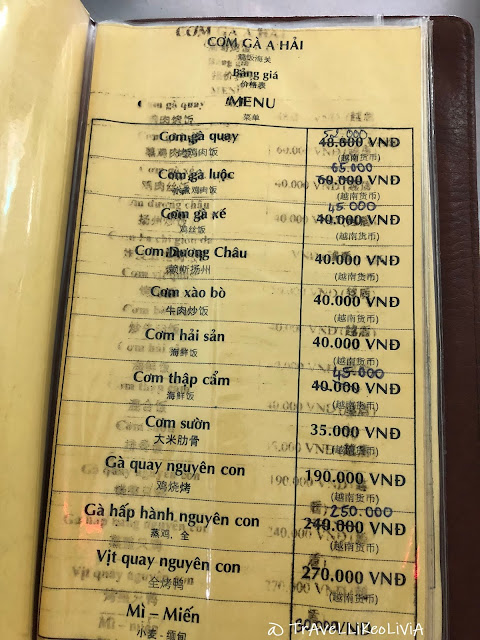 CƠM GÀ A HẢI
Bảng giá
价格表
MENU
菜单
Cơm gà quay 52.000 48.000 VNĐ
鸡肉饭 (越南货币)
Cơm gà luộc 65.000 60.000 VNĐ
鸡肉饭 (越南货币)
Cơm gà xé 45.000 40.000 VNĐ
鸡丝饭 (越南货币)
Cơm Dương Châu 40.000 VNĐ
扬州 (越南货币)
Cơm xào bò 40.000 VNĐ
牛肉炒饭 (越南货币)
Cơm hải sản 40.000 VNĐ
海鲜饭 (越南货币)
Cơm thập cẩm 45.000 40.000 VNĐ
海鲜饭 (越南货币)
Cơm sườn 35.000 VNĐ
大米肋骨 (越南货币)
Gà quay nguyên con 190.000 VNĐ
鸡烧烤 (越南货币)
Gà hấp hành nguyên con 250.000 240.000 VNĐ
蒸鸡, 全 (越南货币)
Vịt quay nguyên con 270.000 VNĐ
全烤鸭 (越南货币)
Mì – Miến
小麦 - 缅甸
@ TRAVELLIKEOLIVIA